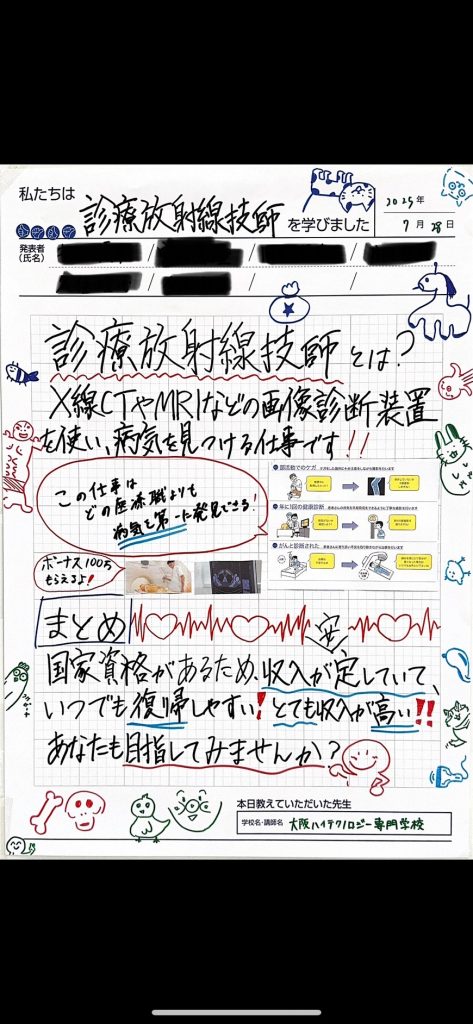 私たちは
診療放射線技師
を学びました
2025年
7月28日
発表者
(氏名)
診療放射線技師とは?
X線CTやMRIなどの画像診断装置
を使い、病気を見つける仕事です!!
この仕事は
どの医療職よりも
病気を第一に発見できる!
部活動でのケガ
年に1回の健康診断
がんと診断された
ボーナス100万
もらえるよ!
まとめ
安
国家資格があるため、収入が定していて、
いつでも復帰しやすい!とても収入が高い!!
あなたも目指してみませんか?
本日教えていただいた先生
学校名・講師名
大阪ハイテクノロジー専門学校